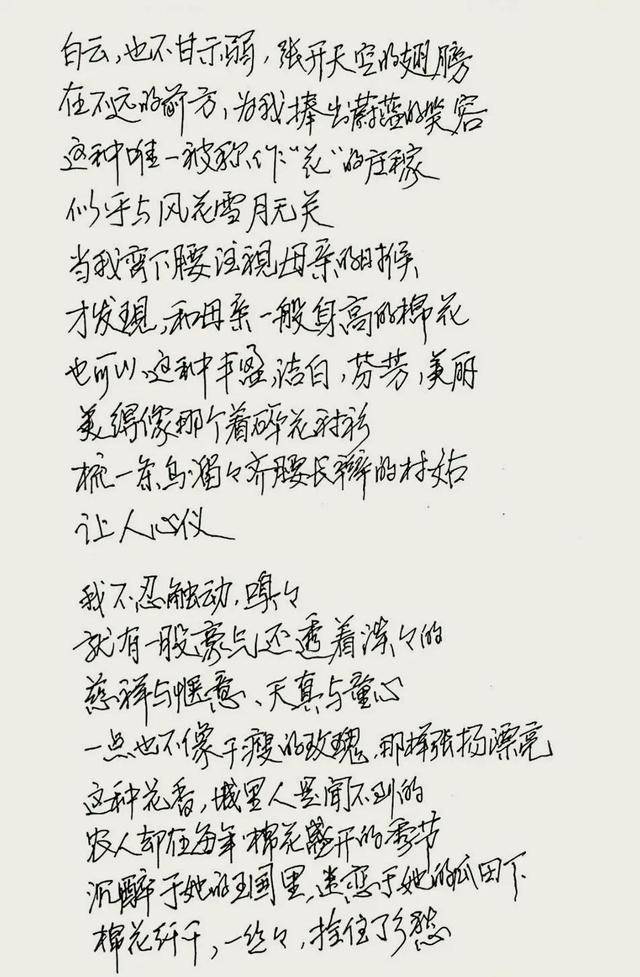 白云,也不甘示弱,张开天空的翅膀
在不远的前方,为我捧出蔚蓝的笑容
这种唯一被称作“花”的庄稼
似乎与风花雪月无关
当我弯下腰注视母亲的时候
才发现,和母亲一般身高的棉花
也可以这种丰盈,洁白,芬芳,美丽
美得像那个着碎花衬衫
梳一条乌溜々齐腰长辫的村姑
让人心仪
我不忍触动,嗅々
就有一股豪气还透着淡々的
慈祥与惬意、天真与童心
一点也不像干瘦的玫瑰,那样张扬漂亮
这种花香,城里人是闻不到的
农人却在每年棉花盛开的季节
沉醉于她的王国里,迷恋于她的瓜田下
棉花纤千,一丝々,拴住了乡愁